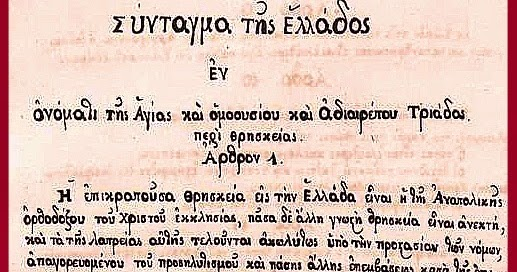 Σύνταγμα τῆς Ἑλλάδος
ἐν
ὀνόματι τῆς Ἁγίας καὶ ὁμοουσίου καὶ ἀδιαιρέτου Τριάδος.
περὶ θρησκείας.
Ἄρθρον 1.
Ἡ ἐπικρατοῦσα θρησκεία εἰς τὴν Ἑλλάδα εἶναι ἡ τῆς Ἀνατολικῆς
ὀρθοδόξου τοῦ Χριστοῦ ἐκκλησίας, πᾶσα δὲ ἄλλη γνωστὴ θρησκεία εἶναι ἀνεκτή,
καὶ τὰ τῆς λατρείας αὐτῆς τελοῦνται ἀκωλύτως ὑπὸ τὴν προστασίαν τῶν νόμων,
ἀπαγορευομένου τοῦ προσηλυτισμοῦ καὶ πάσης ἄλλης ἐπεμβάσεως κατὰ τῆς